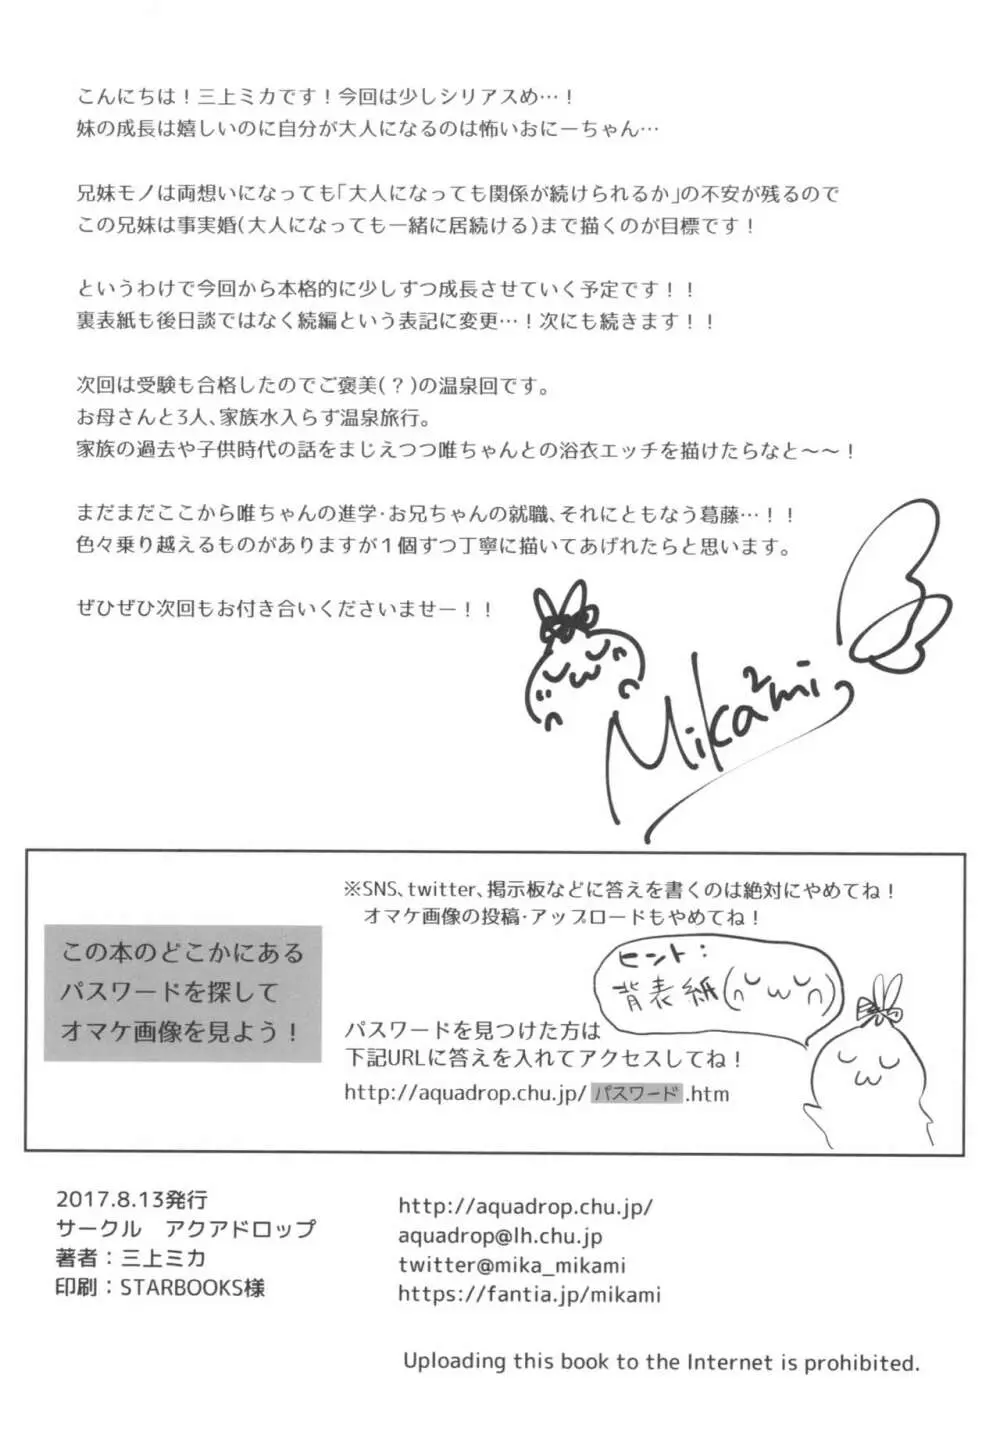 こんにちは！三上ミカです！今回は少しシリアスめ…！
妹の成長は嬉しいのに自分が大人になるのは怖いおにーちゃん…
兄妹モノは両想いになっても「大人になっても関係が続けられるか」の不安が残るので
この兄妹は事実婚(大人になっても一緒に居続ける)まで描くのが目標です！
というわけで今回から本格的に少しずつ成長させていく予定です！！
裏表紙も後日談ではなく続編という表記に変更…！次にも続きます！！
次回は受験も合格したのでご褒美(？)の温泉回です。
お母さんと3人、家族水入らず温泉旅行。
家族の過去や子供時代の話をまじえつつ唯ちゃんとの浴衣エッチを描けたらなと～～！
まだまだここから唯ちゃんの進学・お兄ちゃんの就職、それにともなう葛藤…！！
色々乗り越えるものがありますが１個ずつ丁寧に描いてあげれたらと思います。
ぜひぜひ次回もお付き合いくださいませー！！
Mika2mi
※SNS、twitter、掲示板などに答えを書くのは絶対にやめてね！
オマケ画像の投稿・アップロードもやめてね！
この本のどこかにある
パスワードを探して
オマケ画像を見よう！
ヒント：
背表紙
パスワードを見つけた方は
下記URLに答えを入れてアクセスしてね！
http://aquadrop.chu.jp/ パスワード .htm
2017.8.13発行
サークル　アクアドロップ
著者：三上ミカ
印刷：STARBOOKS様
http://aquadrop.chu.jp/
aquadrop@lh.chu.jp
twitter@mika_mikami
https://fantia.jp/mikami
Uploading this book to the Internet is prohibited.